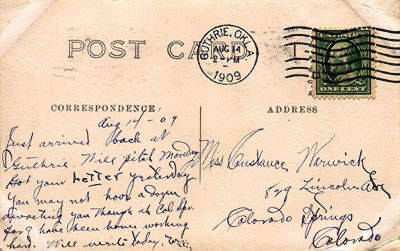 POST CARD
GUTHRIE, OKLA.
AUG 14
2-PM
1909
ONE CENT
CORRESPONDENCE
ADDRESS
Aug 14 - 09
Just arrived back at
Guthrie Will pitch Monday
Got your letter yesterday
You may not hear
you though at Col Spr
for I have been working
hard. Will write today,
Miss Constance Warwick
829 Lincoln Av
Colorado Springs
Colorado